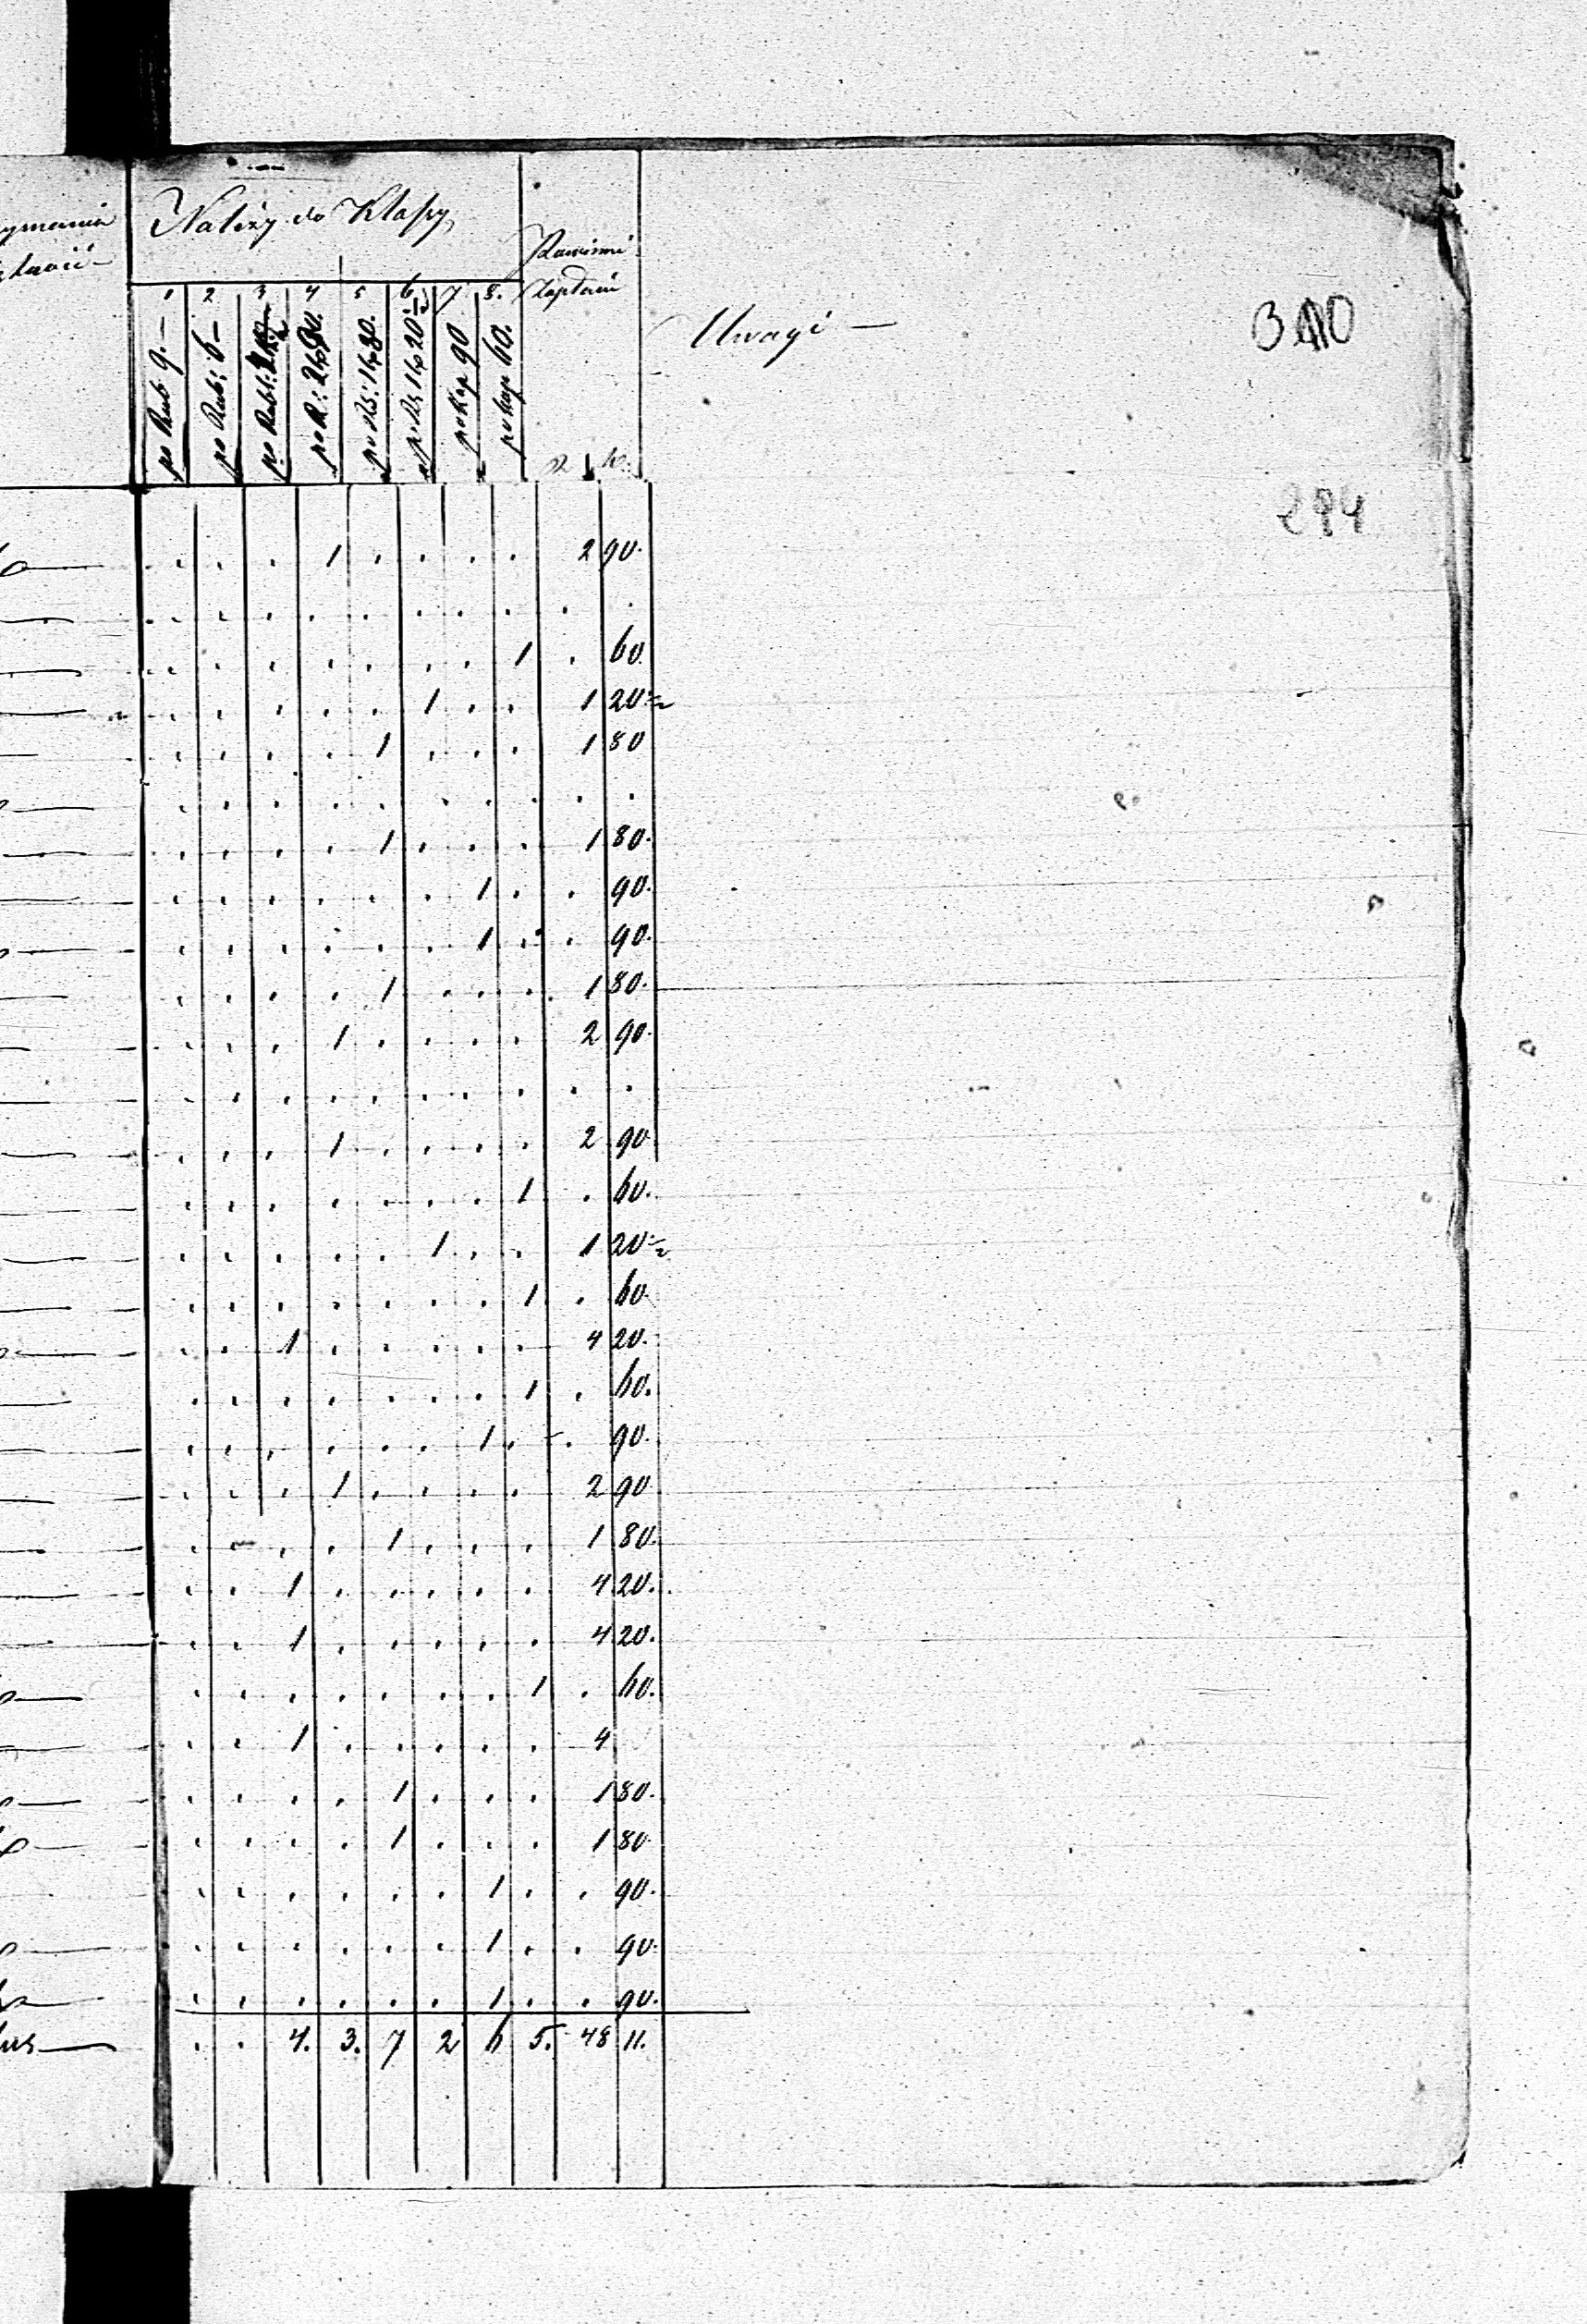 Należy do Klassy
Powinni
zapłacić
1 2 3 4 5 6 7 8.
po Rub 9.—
po Rub: 6—
po R: 2 kop 90.
po Rs: 1 kop 80.
po Rs 1 kop 20½
po kop 90
po kop 60.
R K.
Uwagi —
310
294
. . . 1 . . . . 2 90.
. . . . . . . . . .
. . . . . . . 1 . 60.
. . . . . 1 . . 1 20½
. . . . 1 . . . 1 80
. . . . . . . . . .
. . . . 1 . . . 1 80.
. . . . . . 1 . . 90.
. . . . . . 1 . . 90.
. . . . 1 . . . 1 80.
. . . 1 . . . . 2 90.
. . . . . . . . . .
. . . 1 . . . . 2 90
. . . . . . . 1 . 60.
. . . . . 1 . . 1 20½
. . . . . . . 1 . 60.
. . 1 . . . . . 4 20.
. . . . . . . 1 . 60.
. . . . . . 1 . . 90.
. . . 1 . . . . 2 90
. . . . 1 . . . 1 80.
. . 1 . . . . . 4 20.
. . 1 . . . . . 4 20.
. . . . . . . 1 . 60.
. . 1 . . . . . 4
. . . . 1 . . . 1 80.
. . . . 1 . . . 1 80
. . . . . . 1 . . 90.
. . . . . . 1 . . 90.
. . . . . . 1 . . 90.
. . 4. 3. 7 2 6 5. 48 11.